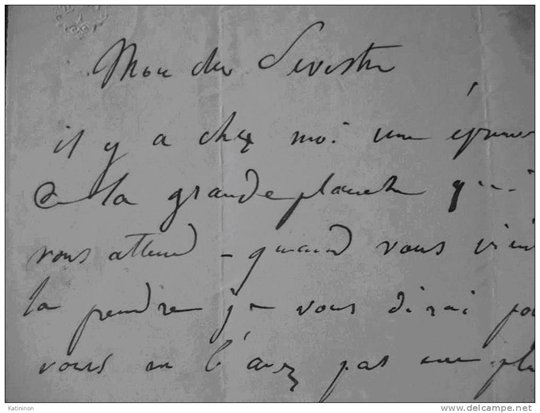 Mon cher Sevestre
il y a chez moi une épreuve
de la grande planche qui
vous attend – quand vous vien
la prendre je vous dirai po
vous ne l'avez pas eue pl
Katininon
www.delcampe.net